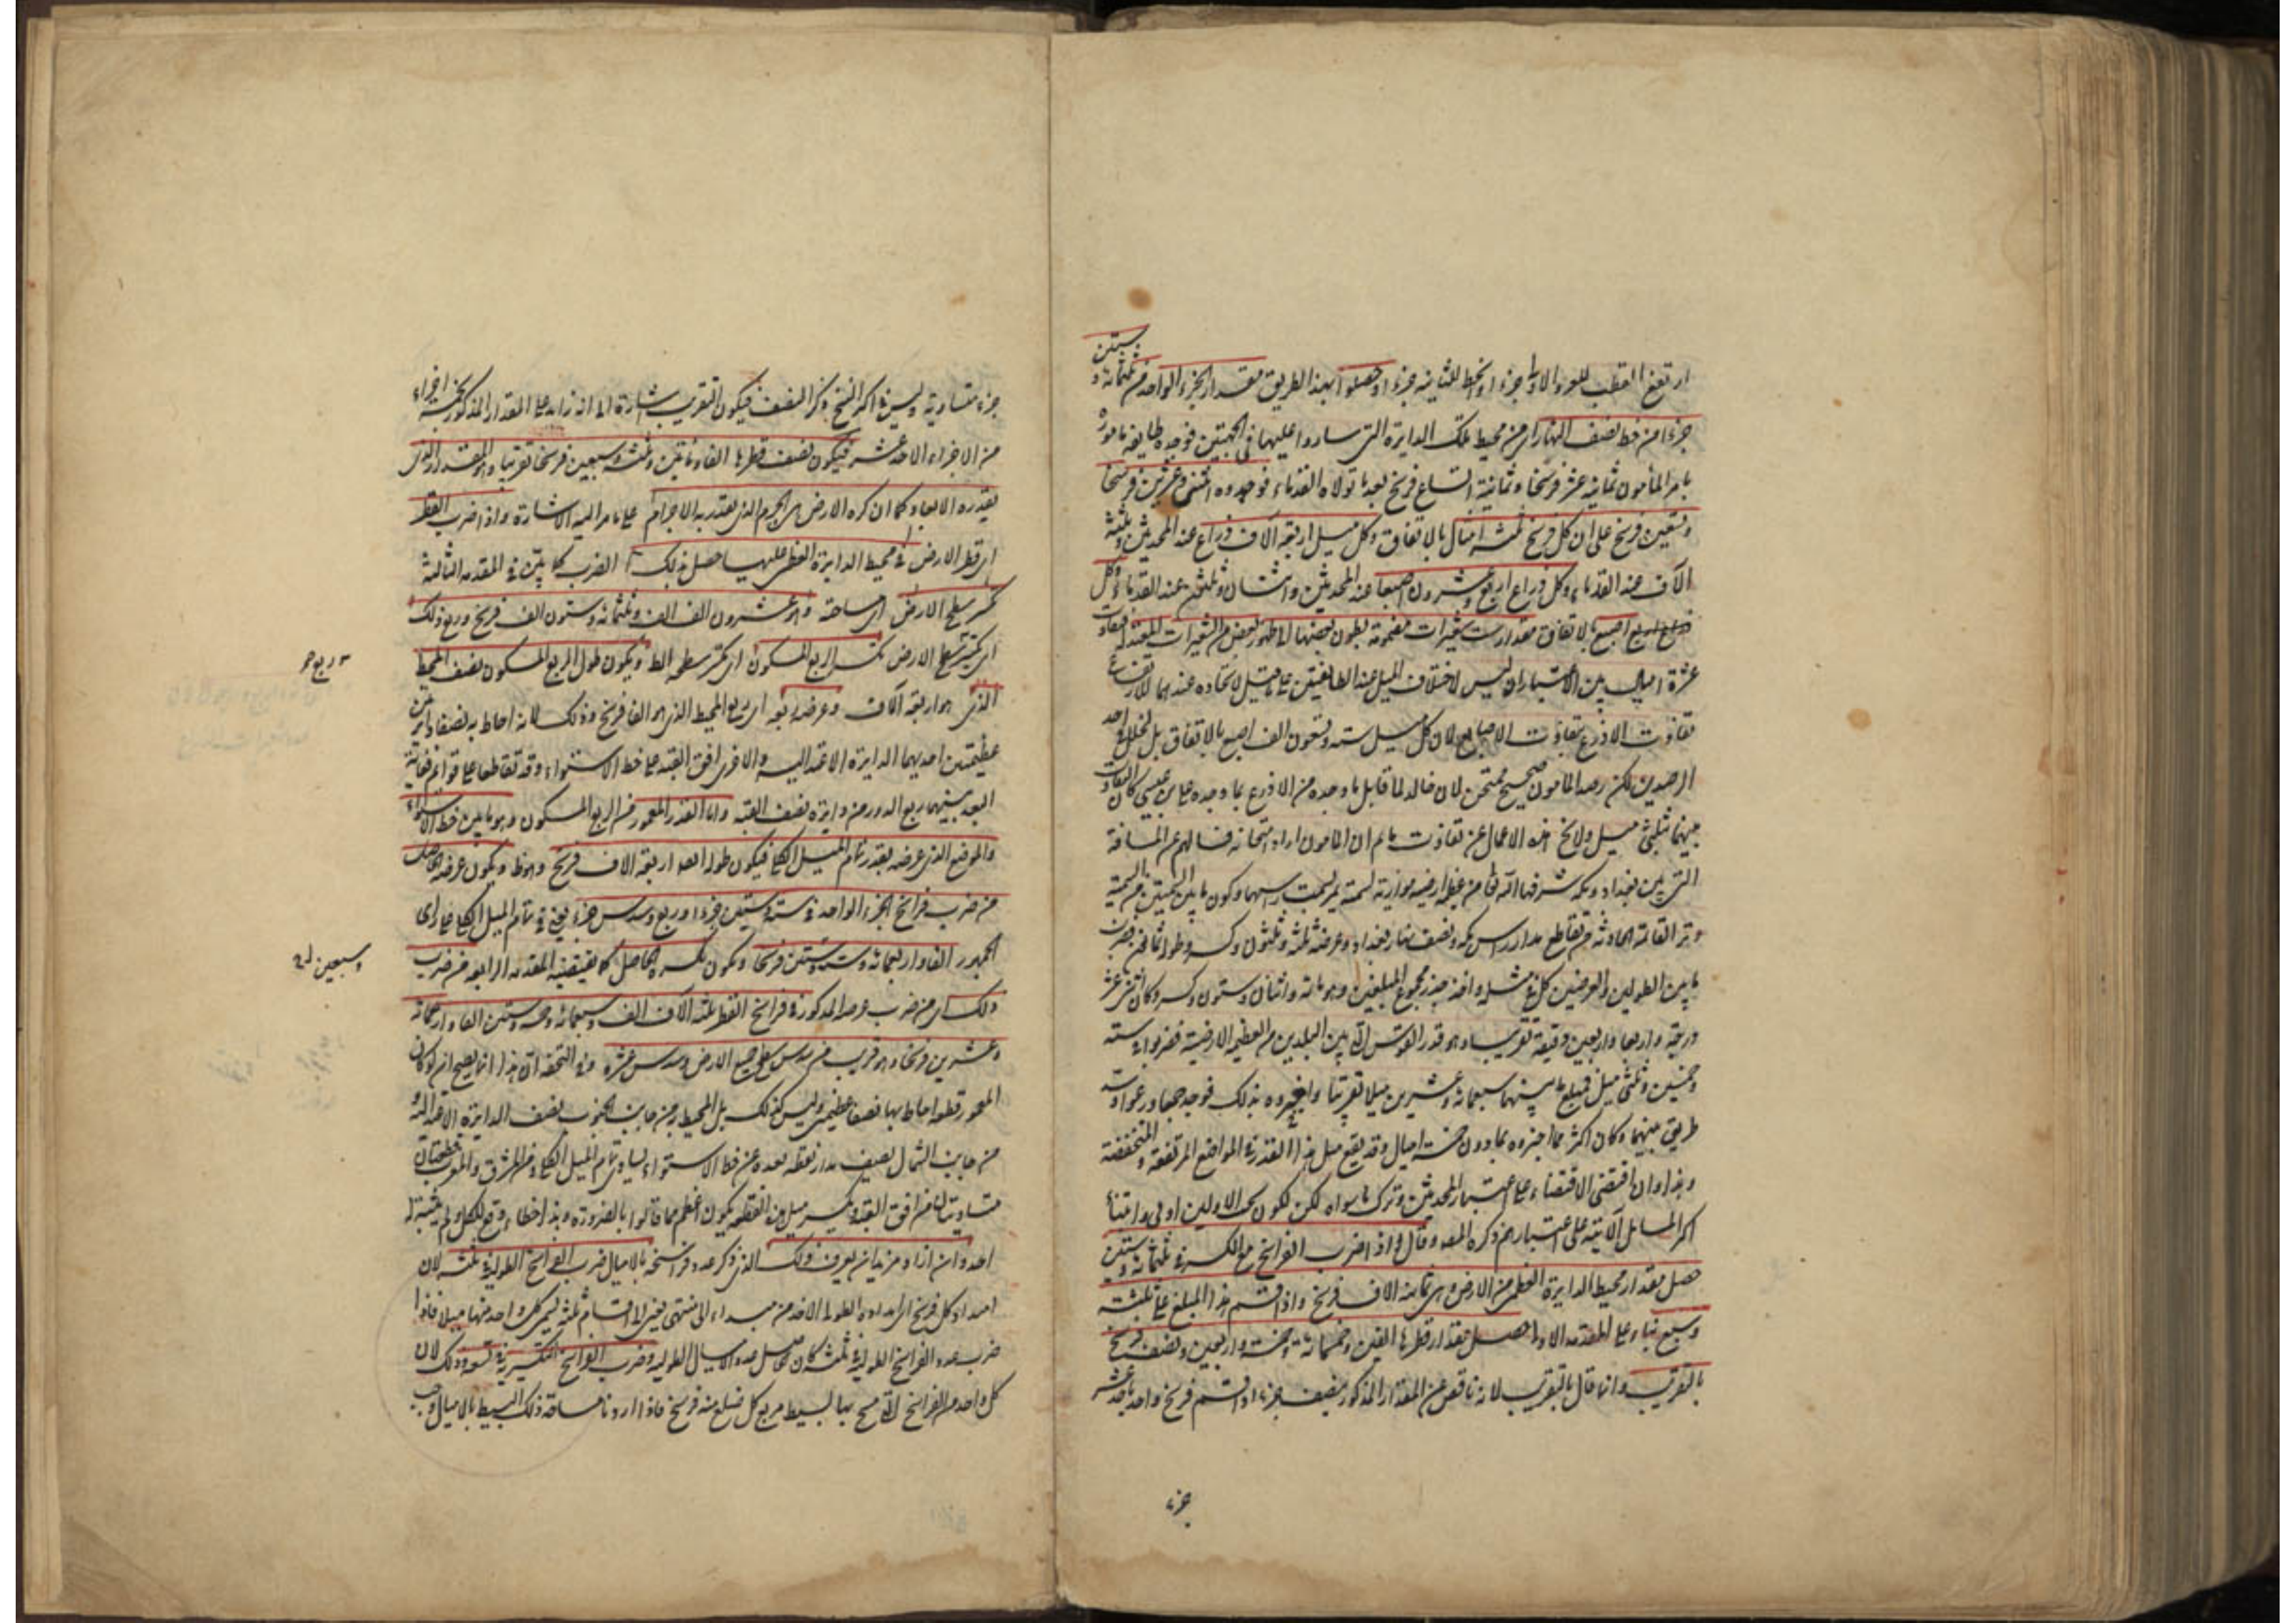 ستين
ارتفع القطب للاولى جزءا وانحط للثانية جزءا وحصلوا بهذا الطريق مقدار الجزء الواحد من ثلثمائة و
جزءا من خط نصف النهار اى من محيط تلك الدايرة التى ساروا عليها فى الجهتين فوجده طايفة
بامر المأمون ثمانية عشر فرسخا وثمانية اتساع فرسخ بعد ما تولاه القدماء فوجدوه اثنى وعشرين فرسخا
وتسعين فرسخ على ان كل فرسخ ثلثة اميال بالاتفاق وكل ميل اربعة آلاف ذراع عند المحدثين وثلثة
آلاف عند القدماء وكل ذراع اربع وعشرون اصبعا عند المحدثين واثنتان وثلثون عند القدماء وكل
اصبع بالاتفاق مقدار ست شعيرات مضمومة بطون بعضها الى ظهور بعض من الشعيرات المعتدلة
عشرة اميال بين الاعتبارين ليس لاختلاف الميل عند الطائفتين على ما قيل لاتحاده عندهما
تفاوت الاذرع بتفاوت الاصابع لان كل ميل ستة وتسعون الف اصبع بالاتفاق بل لخلل فى احد
الرصدين لكن رصد المأمون صحيح ممتحن لان خالد لما قابل ما وجده من الاذرع بما وجده على بن عيسى كان التفاوت
بينهما ثلثى ميل ولا يخ هذه الاعمال عن تفاوت ما ثم ان المأمون اراد امتحانه فسالهم عن المسافة
التى بين بغداد ومكة شرفها الله
ما بين الطولين والعرضين كل فى مثله واخذ جذر مجموع المبلغين وهو مائة واثنان وستون وكسر وكان اثنى عشر
درجة واربعا واربعين دقيقة تقريبا وهو قدر القوس التى بين البلدين من العظيمة الارضية فضربوا فى ستة
وخمسين وثلثى ميل فبلغ ما بينهما سبعمائة وعشرين ميلا تقريبا واخبروه بذلك
طريق بينهما وكان اكثر مما اخبروه بما دون خمسة اميال وقد يقع مثل هذا القدر فى المواضع المرتفعة والمنخفضة
وهذا وان اقتضى الاقتصار على اعتبار المحدثين وترك ما سواه لكن لكون عمل الاولين اولى وابتناء
اكثر المسايل الآتية على اعتبارهم ذكره المصنف وقال واذا ضرب الفراسخ مع الكسر فى ثلثمائة وستين
حصل مقدار محيط الدايرة العظمى من الارض وهى ثمانية الاف فرسخ واذا قسم هذا المبلغ على ثلثة
وسبع بناء على المقدمة الاولى حصل مقدار قطرها الفين وخمسمائة وخمسة واربعين ونصف فرسخ
بالتقريب وانما قال بالتقريب لانه ناقص عن المقدار المذكور بنصف جزء اذا قسم فرسخ واحد باحد عشر
جزء
جزء متساوية وليس فى اكثر النسخ ذكر النصف فيكون التقريب اشارة الى انه زايد على المقدار المذكور بخمسة اجزاء
من الاجزاء الاحد عشر فيكون نصف قطرها الفا ومائتين وثلثة وسبعين فرسخا تقريبا وهو المقدار الذى
يقدر به الابعاد كما ان كرة الارض هى الجرم الذى يقدر به الاجرام على ما مر اليه الاشارة واذا ضرب القطر
اى قطر الارض فى محيط الدايرة العظمى عليها حصل بذلك الضرب كما بين فى المقدمة الثالثة
تكسير سطح الارض اى مساحته وهو عشرون الف الف وثلثمائة وستون الف فرسخ وربع ذلك
اى تكسير سطح الارض تكسير الربع المسكون اى تكسير سطحه الظ ويكون طول الربع المسكون نصف المحيط
الذى هو اربعة آلاف وعرضه ربعه اى ربع المحيط الذى هو الفا فرسخ وذلك لانه احاط به نصفا دائرتين
عظيمتين احديهما الدايرة الاعتدالية والاخرى افق القبة على خط الاستواء وقد تقاطعا على قوائم فغاية
البعد بينهما ربع الدور من دايرة نصف القبة واما القدر المعمور من الربع المسكون وهو ما بين خط الاستواء
والموضع الذى عرضه بقدر تمام الميل الكلى فيكون طوله ايضا اربعة الاف فرسخ وهو ظ ويكون عرضه الحاصل
من ضرب فراسخ الجزء الواحد فى ستة وستين جزءا وربع وسدس جزء يعنى فى تمام الميل الكلى على راى
الجمهور الفا واربعمائة وستة وستين فرسخا ويكون تكسيره الحاصل كما يقتضيه المقدمة الرابعة من ضرب
ذلك اى من ضرب عرضه المذكور فى فراسخ القطر ثلثة آلاف الف وسبعمائة وخمسة وستين الفا واربعمائة
وعشرين فرسخا وهو قريب من سدس سطح جميع الارض وسدس عشره وفى التحفة ان هذا انما يصح ان لو كان
المعمور قطعة احاط بها نصفا عظيمتين وليس كذلك بل المحيط به من جانب الجنوب نصف الدايرة الاعتدالية و
من جانب الشمال نصف مدار نقطة بعده عن خط الاستواء يساوى تمام الميل الكلى ومن المشرق والمغرب قطعتان
متساويتان من افق القبة وتكسير مثل هذه القطعة يكون اعظم مما قالوا بالضرورة وهذا خطاء وقع للكل ولم يتنبه له
احد وان اراد مريد ان يعرف ذلك الذى ذكر عدد فراسخه بالاميال ضرب الفراسخ الطولية فى ثلثة لان
امتداد كل فرسخ
ضرب عدد الفراسخ الطولية فى ثلثة كان الحاصل عدد الاميال الطولية وضرب الفراسخ التكسيرية فى تسعة وذلك لان
كل واحد من الفراسخ التى يمسح بها البسيط مربع كل ضلع منه فرسخ فاذا اردنا مساحة ذلك البسيط بالاميال وجب
وسبعين